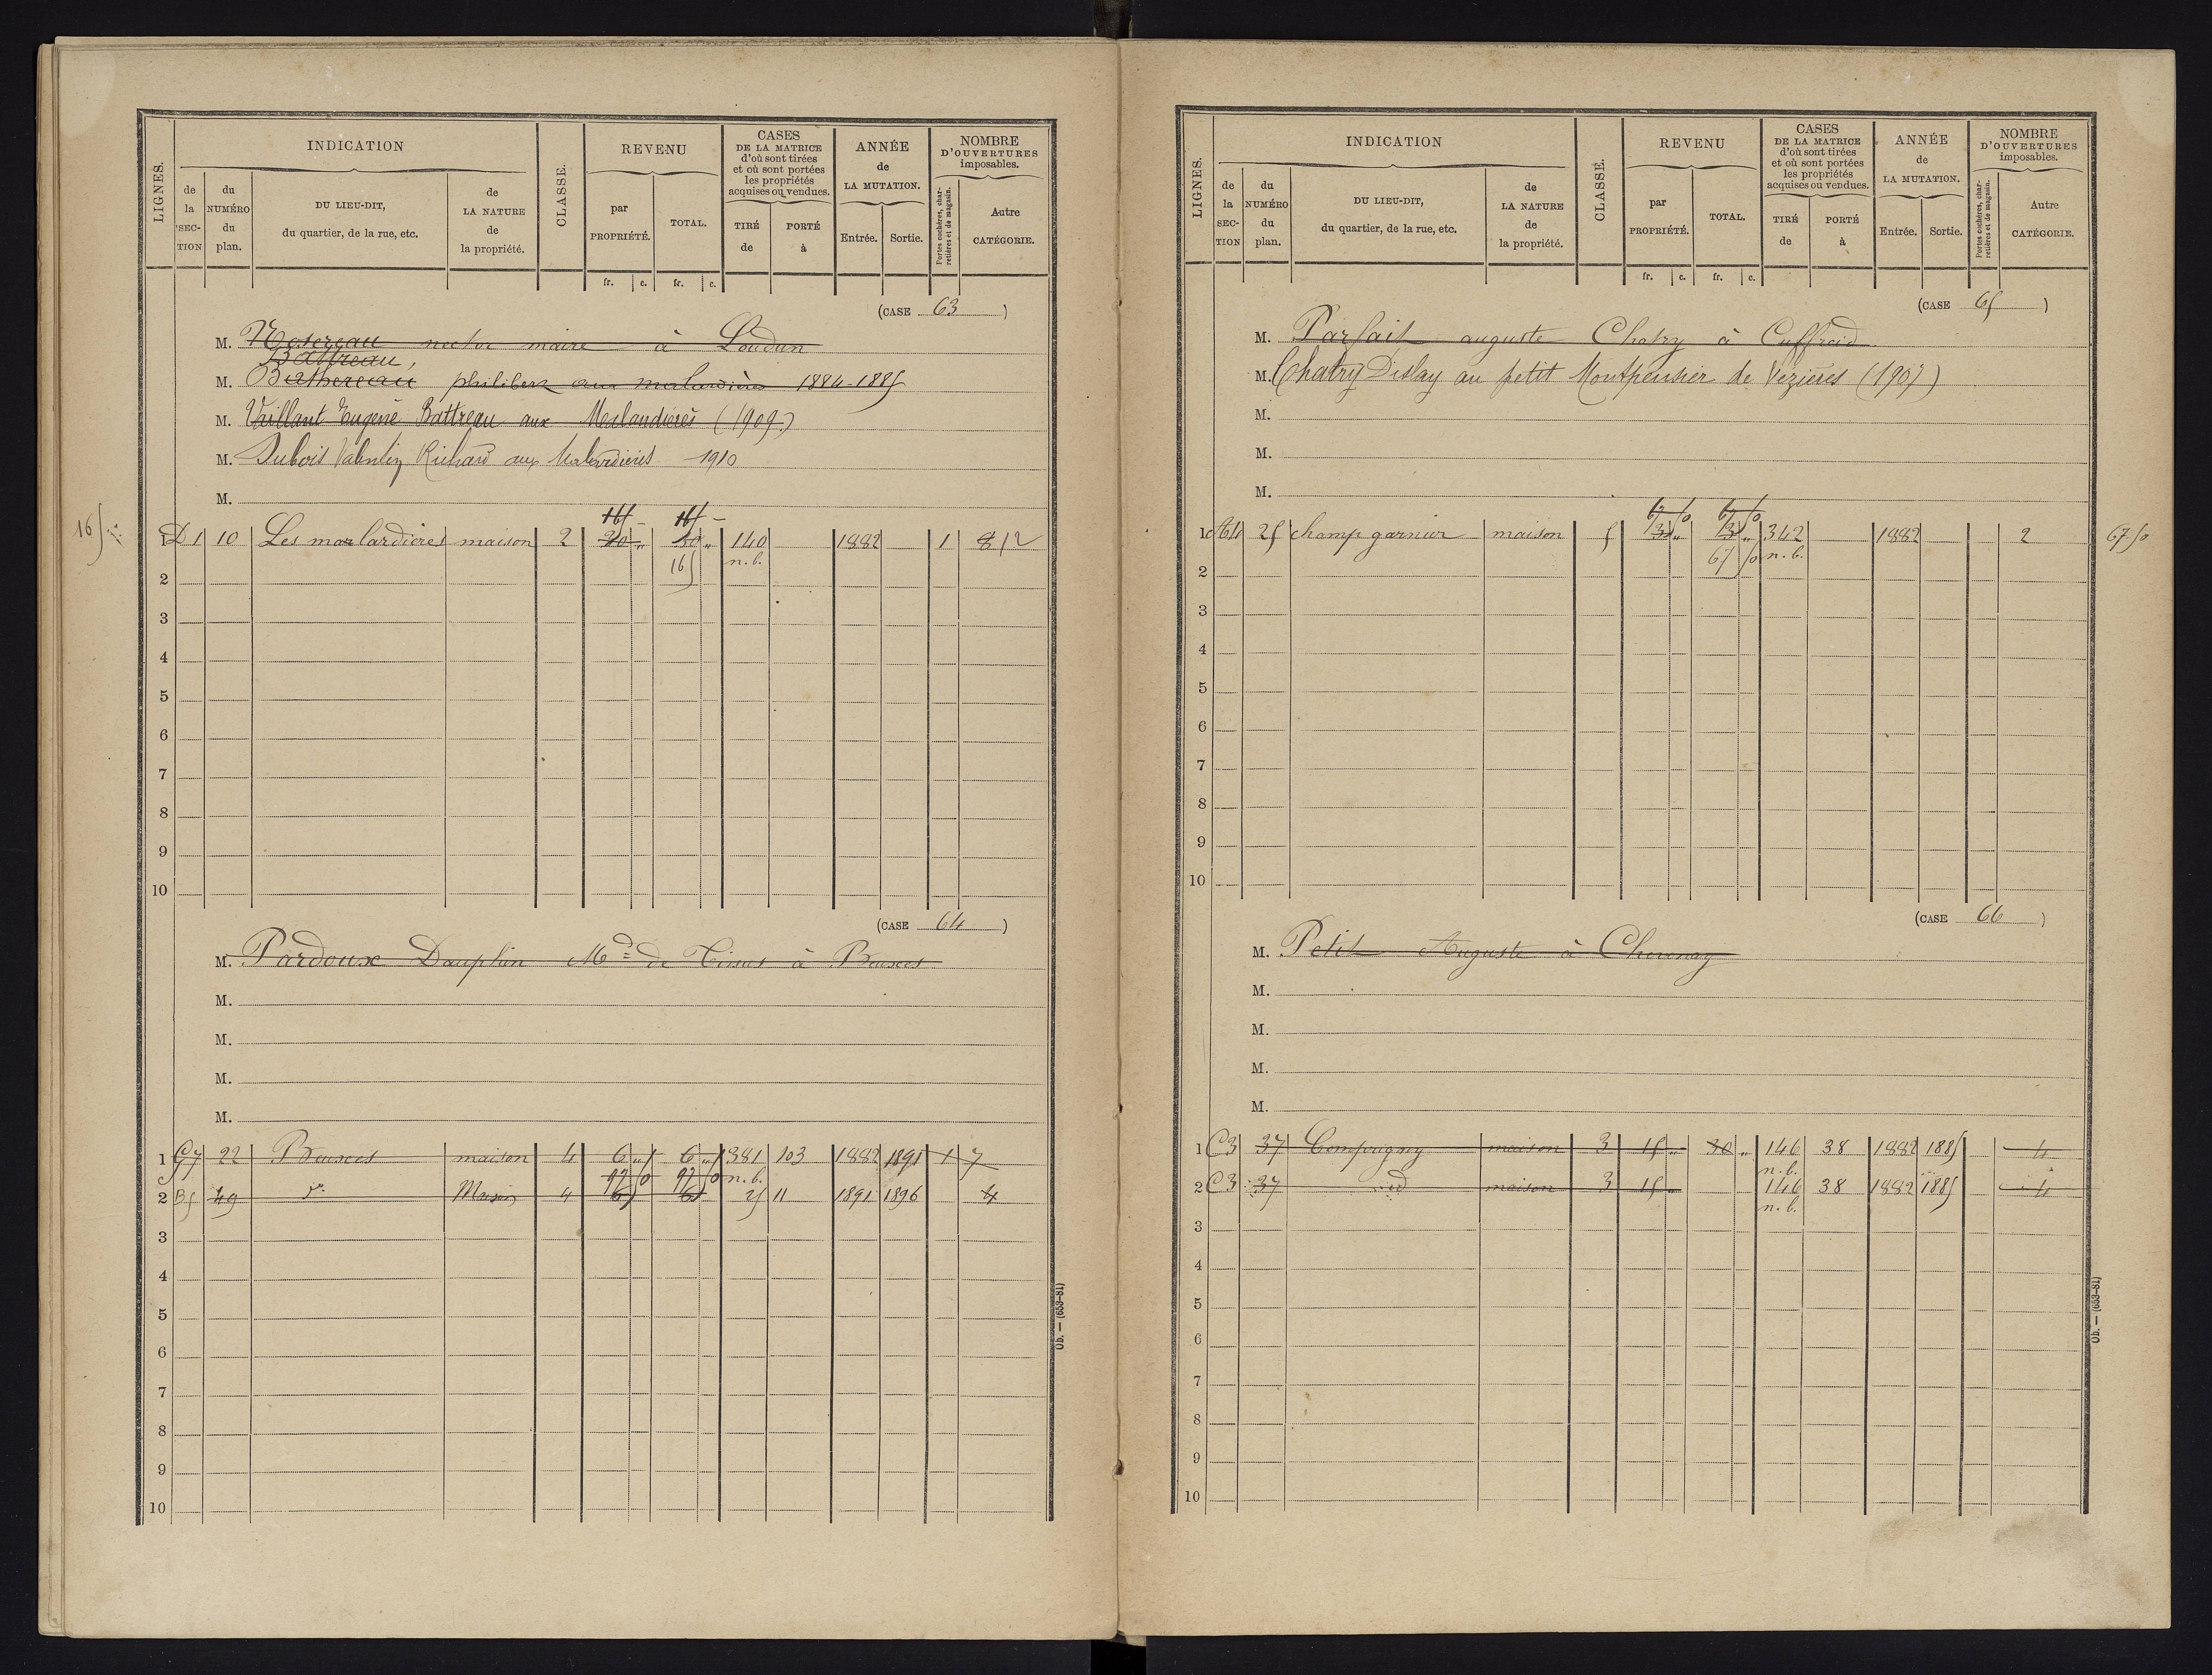 LIGNES.
INDICATION
CLASSE.
REVENU
CASES
DE LA MATRICE
d'où sont tirées
et où sont portées
les propriétés
acquises ou vendues.
ANNÉE
de
LA MUTATION.
NOMBRE
D'OUVERTURES
imposables.
de la SECTION
du NUMÉRO du plan.
DU LIEU-DIT,
du quartier, de la rue, etc.
de LA NATURE de la propriété.
par PROPRIÉTÉ.
TOTAL.
TIRÉ de
PORTÉ à
Entrée.
Sortie.
Portes cochères, charretières et de magasin.
Autre CATÉGORIE.
fr. c. fr. c.
(CASE 63)
M. nector maire à Loudun
Battreau,
M. Bathereau philibert aux 1884-1885
M. Vaillant Eugène Battreau aux (1909)
M. Dubois Valentin Richard aux 1910
M.
165 -- 165 --
165 1 D1 10 Les maison 2 30 " 30 " 140 1882 1 8 12
165 n.b.
2
3
4
5
6
7
8
9
10
(CASE 64)
M. Pardoux Dauphin Md de Tissus à
M.
M.
M.
M.
1 G7 22 maison 4 6 " 6 " 381 103 1882 1891 1 7
97 50 97 50 n.b.
2 B5 49 do Maison 4 25 11 1891 1896 4
3
4
5
6
7
8
9
10
Ob. — (653-81)
LIGNES.
INDICATION
CLASSE.
REVENU
CASES
DE LA MATRICE
d'où sont tirées
et où sont portées
les propriétés
acquises ou vendues.
ANNÉE
de
LA MUTATION.
NOMBRE
D'OUVERTURES
imposables.
de la SECTION
du NUMÉRO du plan.
DU LIEU-DIT,
du quartier, de la rue, etc.
de LA NATURE de la propriété.
par PROPRIÉTÉ.
TOTAL.
TIRÉ de
PORTÉ à
Entrée.
Sortie.
Portes cochères, charretières et de magasin.
Autre CATÉGORIE.
fr. c. fr. c.
(CASE 65)
M. Parfait auguste Chatry à
M. Chatry Dislay au petit Montpensier de Vézières (1907)
M.
M.
M.
67 50 67 50
1 25 champ garnier maison 5 342 1882 2 67.50
67 50 n.b.
2
3
4
5
6
7
8
9
10
(CASE 66)
M. Petit Auguste à
M.
M.
M.
M.
1 C3 37 Comprigny maison 3 15 " 30 " 146 38 1882 1885 4
n.b.
2 C3 37 id maison 3 15 " 146 38 1882 1885 4
n.b.
3
4
5
6
7
8
9
10
Ob. — (653-81)